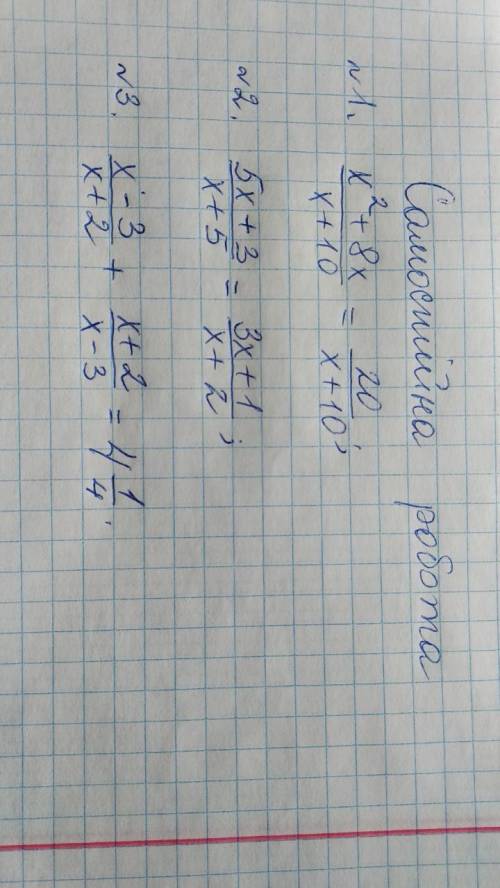 Самостійна робота
№1. (x² + 8x)/(x + 10) = 20/(x + 10);
№2. (5x + 3)/(x + 5) = (3x + 1)/(x + 2);
№3. (x - 3)/(x + 2) + (x + 2)/(x - 3) = 4 1/4.